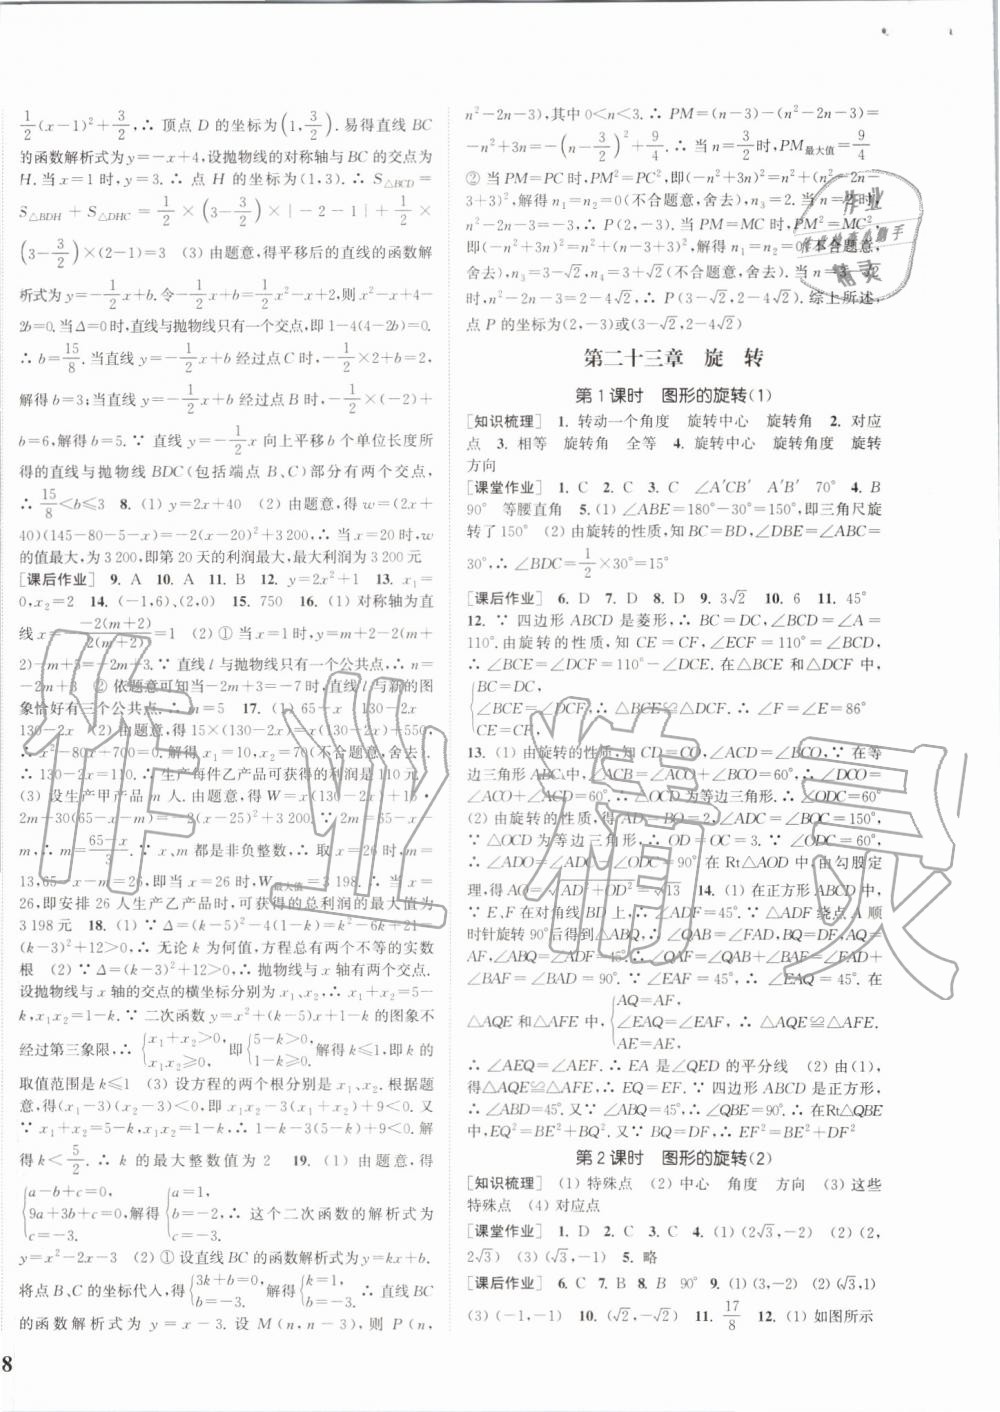 1/2(x-1)²+3/2,∴ 顶点 D 的坐标为(1,3/2). 易得直线 BC
的函数解析式为 y=-x+4,设抛物线的对称轴与 BC 的交点为
H. 当 x=1 时,y=3. ∴ 点 H 的坐标为(1,3). ∴ S△BCD =
S△BDH + S△DHC = 1/2×(3-3/2)×|-2-1|+1/2×
(3-3/2)×(2-1)=3 (3) 由题意,得平移后的直线的函数解
析式为 y=-1/2x+b. 令-1/2x+b=1/2x²-x+2,则 x²-x+4-
2b=0. 当Δ=0时,直线与抛物线只有一个交点,即 1-4(4-2b)=0.
∴ b=15/8. 当直线 y=-1/2x+b 经过点 C 时,-1/2×2+b=2.
解得 b=3;当直线 y=-1/2x+b 经过点 B 时,-1/2×(-2)+
b=6,解得 b=5. ∵ 直线 y=-1/2x 向上平移 b 个单位长度所
得的直线与抛物线 BDC (包括端点 B、C) 部分有两个交点,
∴ 15/8<b≤3 8. (1) y=2x+40 (2) 由题意,得 w=(2x+
40)(145-80-5-x)=-2(x-20)²+3 200,∴ 当 x=20 时,w
的值最大,为 3 200,即第 20 天的利润最大,最大利润为 3 200 元
[课后作业] 9. A 10. A 11. B 12. y=2x²+1 13. x₁=
0,x₂=2 14. (-1,6)、(2,0) 15. 750 16. (1) 对称轴为直
线 x=-(-2(m+2))/(2(m+2))=1 (2) ① 当 x=1 时,y=m+2-2(m+
2)-m+3=-2m+3. ∵ 直线 l 与抛物线只有一个公共点,∴ n=
-2m+3 ② 依题意可知当-2m+3=-7 时,直线与新的图
象恰好有三个公共点. ∴ m=5 17. (1) 65-x (130-2x)
130-2x (2) 由题意,得 15×2(65-x)=x(130-2x)+550,
∴ x²-80x+700=0. 解得 x₁=10,x₂=70(不合题意,舍去).
∴ 130-2x=110. ∴ 生产每件乙产品可获得的利润是 110 元
(3) 设生产甲产品 m 人. 由题意,得 W=x(130-2x)+15·
2m+30(65-x-m)=-2(x-25)²+3 200. ∵ 2m=65-x-
m,∴ m=(65-x)/3. ∵ x、m 都是非负整数,∴ 取 x=26 时,m=
13,65-x-m=26,即当 x=26 时,W最大值=3 198. ∴ 当 x=
26,即安排 26 人生产乙产品时,可获得的总利润的最大值为
3 198 元 18. (1) ∵ Δ=(k-5)²-4(1-k)=k²-6k+21=
(k-3)²+12>0,∴ 无论 k 为何值,方程总有两个不等的实数
根 (2) ∵ Δ=(k-3)²+12>0,∴ 抛物线与 x 轴有两个交点.
设抛物线与 x 轴的交点的横坐标分别为 x₁、x₂,∴ x₁+x₂=5-
k,x₁x₂=1-k. ∵ 二次函数 y=x²+(k-5)x+1-k 的图象不
经过第三象限,∴ {x₁+x₂>0, x₁x₂≥0, 即 {5-k>0, 1-k≥0. 解得 k≤1,即 k 的
取值范围是 k≤1 (3) 设方程的两个根分别是 x₁、x₂. 根据题
意,得(x₁-3)(x₂-3)<0,即 x₁x₂-3(x₁+x₂)+9<0. 又
∵ x₁+x₂=5-k,x₁x₂=1-k,∴ 1-k-3(5-k)+9<0. 解
得 k<5/2. ∴ k 的最大整数值为 2 19. (1) 由题意,得
{a-b+c=0, 9a+3b+c=0, c=-3. 解得 {a=1, b=-2, c=-3. ∴ 这个二次函数的解析式为
y=x²-2x-3 (2) ① 设直线 BC 的函数解析式为 y=kx+b.
将点 B、C 的坐标代入,得 {3k+b=0, b=-3. 解得 {k=1, b=-3. ∴ 直线 BC
的函数解析式为 y=x-3. 设 M (n,n-3),则 P (n,
8
n²-2n-3),其中 0<n<3. ∴ PM=(n-3)-(n²-2n-3)=
-n²+3n=-(n-3/2)²+9/4. ∴ 当 n=3/2 时,PM最大值=9/4
② 当 PM=PC 时,PM²=PC²,即(-n²+3n)²=n²+(n²-2n-
3+3)². 解得 n₁=n₂=0(不合题意,舍去),n₃=2. 当 n=2 时,
n²-2n-3=-3,∴ P(2,-3). 当 PM=MC 时,PM²=MC²,
即(-n²+3n)²=n²+(n-3+3)²,解得 n₁=0(不合题意,
舍去),n₂=3-√2,n₃=3+√2(不合题意,舍去). 当 n=3-√2
时,n²-2n-3=2-4√2,∴ P(3-√2,2-4√2). 综上所述,
点 P 的坐标为(2,-3)或(3-√2,2-4√2)
第二十三章 旋 转
第 1 课时 图形的旋转(1)
[知识梳理] 1. 转动一个角度 旋转中心 旋转角 2. 对应
点 3. 相等 旋转角 全等 4. 旋转中心 旋转角度 旋转
方向
[课堂作业] 1. C 2. C 3. C ∠A′CB′ A′B′ 70° 4. B
90° 等腰直角 5. (1) ∠ABE=180°-30°=150°,即三角尺旋
转了 150° (2) 由旋转的性质,知 BC=BD,∠DBE=∠ABC=
30°,∴ ∠BDC=1/2×30°=15°
[课后作业] 6. D 7. D 8. D 9. 3√2 10. 6 11. 45°
12. ∵ 四边形 ABCD 是菱形,∴ BC=DC,∠BCD=∠A=
110°. 由旋转的性质,知 CE=CF,∠ECF=110°=∠BCD,
∴ ∠BCE=∠DCF=110°-∠DCE. 在△BCE 和△DCF 中,
{BC=DC, ∠BCE=∠DCF, CE=CF, ∴ △BCE≌△DCF. ∴ ∠F=∠E=86°
13. (1) 由旋转的性质,知 CD=CO,∠ACD=∠BCO. ∵ 在等
边三角形 ABC 中,∠ACB=∠ACO+∠BCO=60°,∴ ∠DCO=
∠ACO+∠ACD=60°. ∴ △OCD 为等边三角形. ∴ ∠ODC=60°
(2) 由旋转的性质,得 AD=BO=2,∠ADC=∠BOC=150°,
∵ △OCD 为等边三角形,∴ OD=OC=3. ∵ ∠ODC=60°,
∴ ∠ADO=∠ADC-∠ODC=90°. 在 Rt△AOD 中,由勾股定
理,得 AO=√(AD²+OD²)=√13 14. (1) 在正方形 ABCD 中,
∵ E、F 在对角线 BD 上,∴ ∠ADF=45°. ∵ △ADF 绕点 A 顺
时针旋转 90°后得到△ABQ,∴ ∠QAF=90°,BQ=DF,AQ=
AF,∠ABQ=∠ADF=45°,∠BAQ=∠DAF. ∴ ∠BAF+
∠BAQ=∠BAD=90°. ∵ ∠EAF=45°,∴ ∠EAQ=45°. 在
△AQE 和△AFE 中,{AQ=AF, ∠EAQ=∠EAF, AE=AE, ∴ △AQE≌△AFE.
∴ ∠AEQ=∠AEF. ∴ EA 是∠QED 的平分线 (2) 由(1),
得△AQE≌△AFE,∴ EQ=EF. ∵ 四边形 ABCD 是正方形,
∴ ∠ABD=45°. 又∵ ∠ABQ=45°,∴ ∠QBE=90°. ∴ 在Rt△QBE
中,EQ²=BE²+BQ². 又∵ BQ=DF,∴ EF²=BE²+DF²
第 2 课时 图形的旋转(2)
[知识梳理] (1) 特殊点 (2) 中心 角度 方向 (3) 这些
特殊点 (4) 对应点
[课堂作业] 1. D 2. C 3. C 4. (1) (2√3,-2) (2) (2,
2√3) (3) (√3,-1) 5. 略
[课后作业] 6. C 7. B 8. B 90° 9. (1) (3,-2) (2) (√3,1)
(3) (-1,-1) 10. (√2,-√2) 11. 17/8 12. (1) 如图所示
作业
精灵
作业精灵